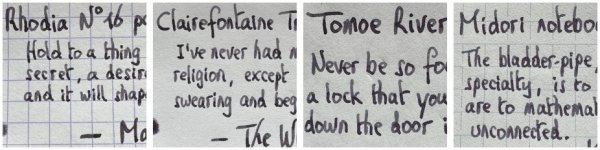 Rhodia N° 16 p
Hold to a thing
secret, a desir
and it will shap
— Mo
Clairefontaine Tr
I've never had m
religion, except
swearing and beg
— The W
Tomoe River
Never be so fo
a lock that you
down the door i
Midori notebo
The bladder-pipe,
specialty, is to
are to mathemat
unconnected.